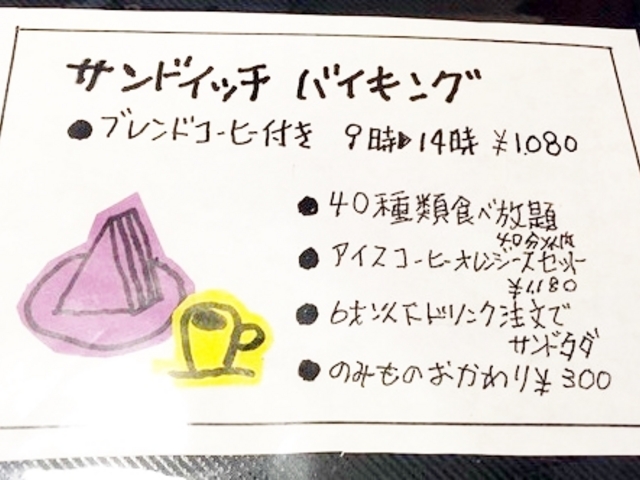 サンドイッチ バイキング
●ブレンドコーヒー付き 9時▶14時 ¥1.080
●40種類食べ放題
40分以内
●アイスコーヒーオレンジースセット
¥1,180
●6才以下ドリンク注文で
サンドタダ
●のみものおかわり¥300